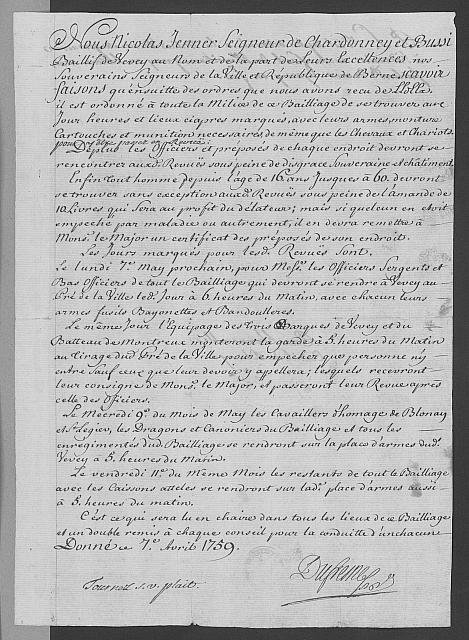 Nous Nicolas Jenner Seigneur de Chardonney et Bussi
Baillif de Vevey au Nom et de la part de Leurs Excellences nos
Souverains Seigneurs de la Ville et République de Berne, scavoir
faisons qu'ensuitte des ordres que nous avons recu de
il est ordonné à toute la Milice de ce Bailliage de se trouver aux
Jour heures et lieux ciapres marqués, avec leurs armes, monture
Cartouches et munition necessaires, de même que les Chevaux et Chariots
pour
Deplus les Officiers et préposés de chaque endroit devront se
rencontrer auxd. Revuës sous peine de disgrace Souveraine et chatiment.
Enfin tout homme depuis l'age de 16 ans Jusques à 60. devront
se trouver sans exception auxd. Revuës sous peine de l'amande de
10 Livres qui sera au profit du délateur; mais si quelcun en etoit
empeché par maladie ou autrement, il en devra remettre à
Mons.r le Major un certificat des préposés de son endroit.
Les Jours marqués pour lesd. Revuës Sont.
Le lundi 7.e May prochain, pour Mess.rs les Officiers Sergents et
Bas Officiers de tout le Bailliage qui devront se rendre à Vevey au
Pré de la Ville led. Jour à 6 heures du Matin, avec chacun leurs
armes fusils Bayonettes et Bandoulleres.
Le même Jour l'Equipage des Trois Barques de Vevey et du
Batteau de Montreux monteront la garde à 5 heures du Matin
au tirage dud. Pré de la Ville pour empecher que personne n'y
entre Sauf ceux que leur devoir y appellera; lesquels recevront
leur consigne de Mons.r le Major, et passeront leur Revue après
celle des Officiers.
Le Mecredi 9.e du Mois de May les Cavailliers d'homage de Blonay
et S.t Legier, les Dragons et Canoniers du Bailliage et tous les
enrégimentés dud. Bailliage se rendront sur la place d'armes dud.
Vevey à 5. heures du Matin.
Le vendredi 11.e du Même Mois les restants de tout le Bailliage
avec les Caissons attelés se rendront sur lad. place d'armes aussi
à 5. heures du matin.
C'est ce qui sera lu en chaire dans tous les lieux de ce Bailliage
et un double remis à chaque conseil pour la conduitte d'un chacun
Donné ce 7.e Avril 1759.
Dufresne
Tournez s.v. plait.